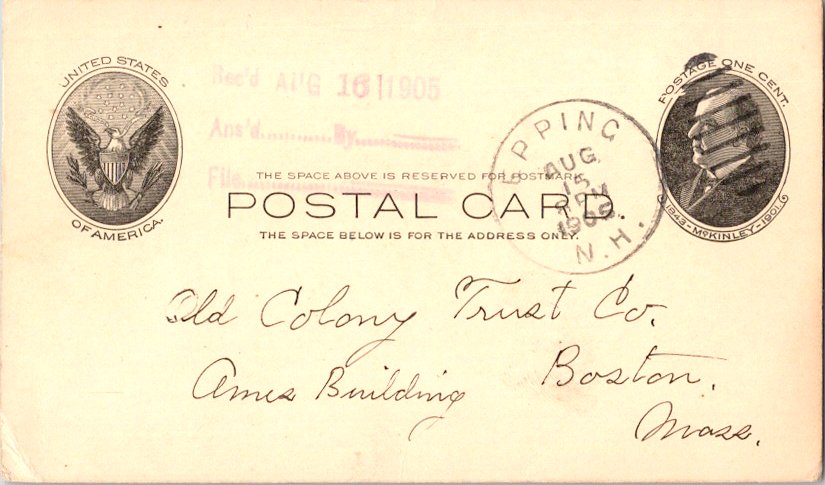 UNITED STATES
OF AMERICA.
Rec'd AUG 16 1905
Ans'd..........By..........
File..........
THE SPACE ABOVE IS RESERVED FOR POSTMARK.
POSTAL CARD.
THE SPACE BELOW IS FOR THE ADDRESS ONLY.
EPPING
AUG
15
PM
1905
N.H.
POSTAGE ONE CENT.
1843-McKINLEY-1901.
Old Colony Trust Co.
Ames Building Boston,
Mass.